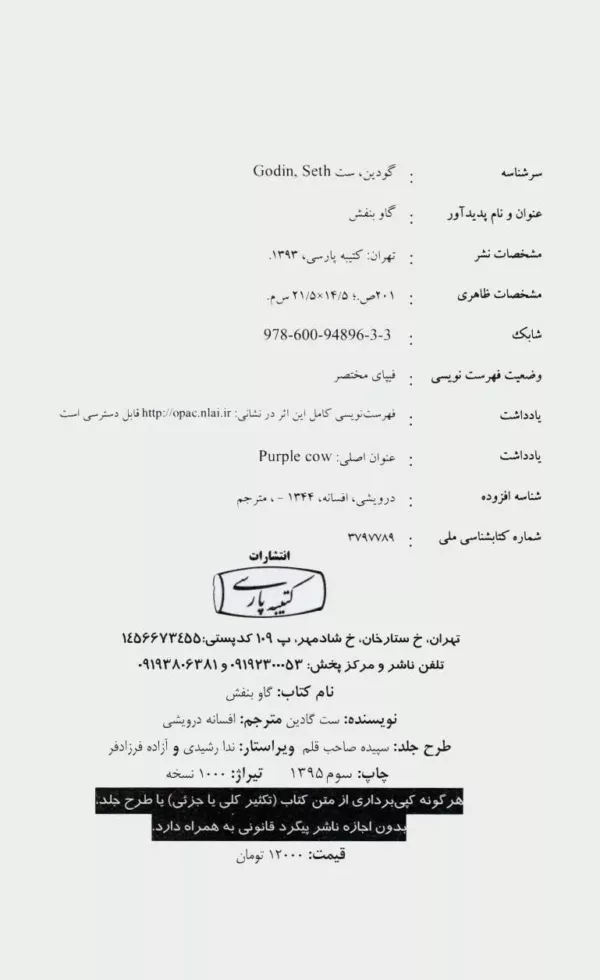 سرشناسه : گودین، ست Godin, Seth
عنوان و نام پدیدآور : گاو بنفش
مشخصات نشر : تهران: کتیبه پارسی، ۱۳۹۳.
مشخصات ظاهری : ۲۰۱ص.؛ ۱۴/۵×۲۱/۵ س‌م.
شابک : 978-600-94896-3-3
وضعیت فهرست نویسی : فیپای مختصر
یادداشت : فهرست‌نویسی کامل این اثر در نشانی: http://opac.nlai.ir قابل دسترسی است
یادداشت : عنوان اصلی: Purple cow
شناسه افزوده : درویشی، افسانه، ۱۳۴۴ - ، مترجم
شماره کتابشناسی ملی : ۳۷۹۷۷۸۹
انتشارات
کتیبه پارسی
تهران، خ ستارخان، خ شادمهر، پ ۱۰۹ کدپستی:۱۴۵۶۶۷۳۴۵۵
تلفن ناشر و مرکز پخش: ۰۹۱۹۲۳۰۰۰۵۳ و ۰۹۱۹۳۸۰۶۳۸۱
نام کتاب: گاو بنفش
نویسنده: ست گادین مترجم: افسانه درویشی
طرح جلد: سپیده صاحب قلم ویراستار: ندا رشیدی و آزاده فرزادفر
چاپ: سوم ۱۳۹۵ تیراژ: ۱۰۰۰ نسخه
هرگونه کپی‌برداری از متن کتاب (تکثیر کلی یا جزئی) یا طرح جلد،
بدون اجازه ناشر پیگرد قانونی به همراه دارد.
قیمت: ۱۲۰۰۰ تومان